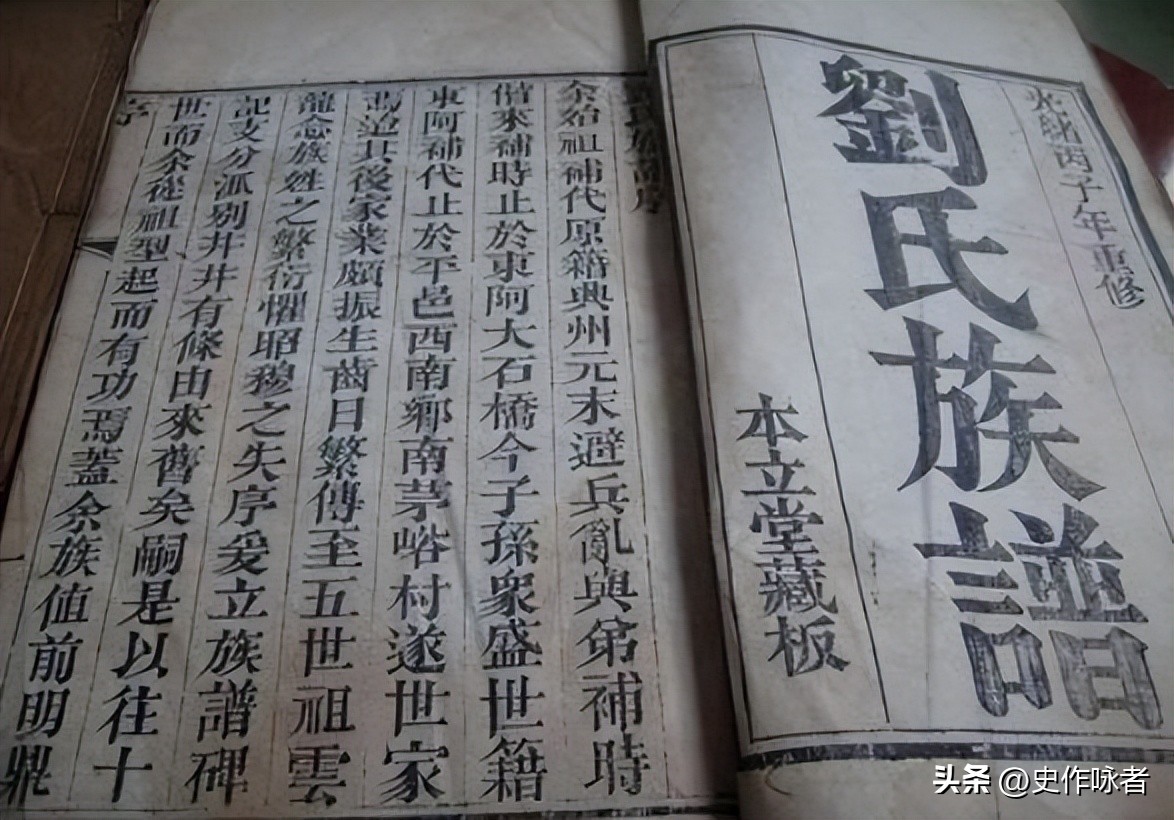 光緒丙子年重修
劉氏族譜
本立堂藏板
氏族譜序
余始祖補代原籍興州元末避兵亂與弟補時
偕來補時止於東阿大石橋今子孫衆盛世籍
東阿補代止於平邑西南鄉南茅峪村遂世家
焉迨其後家業頗振生齒日繁傳至五世祖雲
龍念族姓之繁衍懼昭穆之失序爰立族譜碑
記支分派别井井有條由來舊矣嗣是以往十
世而余從祖型起而有功焉蓋余族值前明鼎
序
头条 @史作咏者